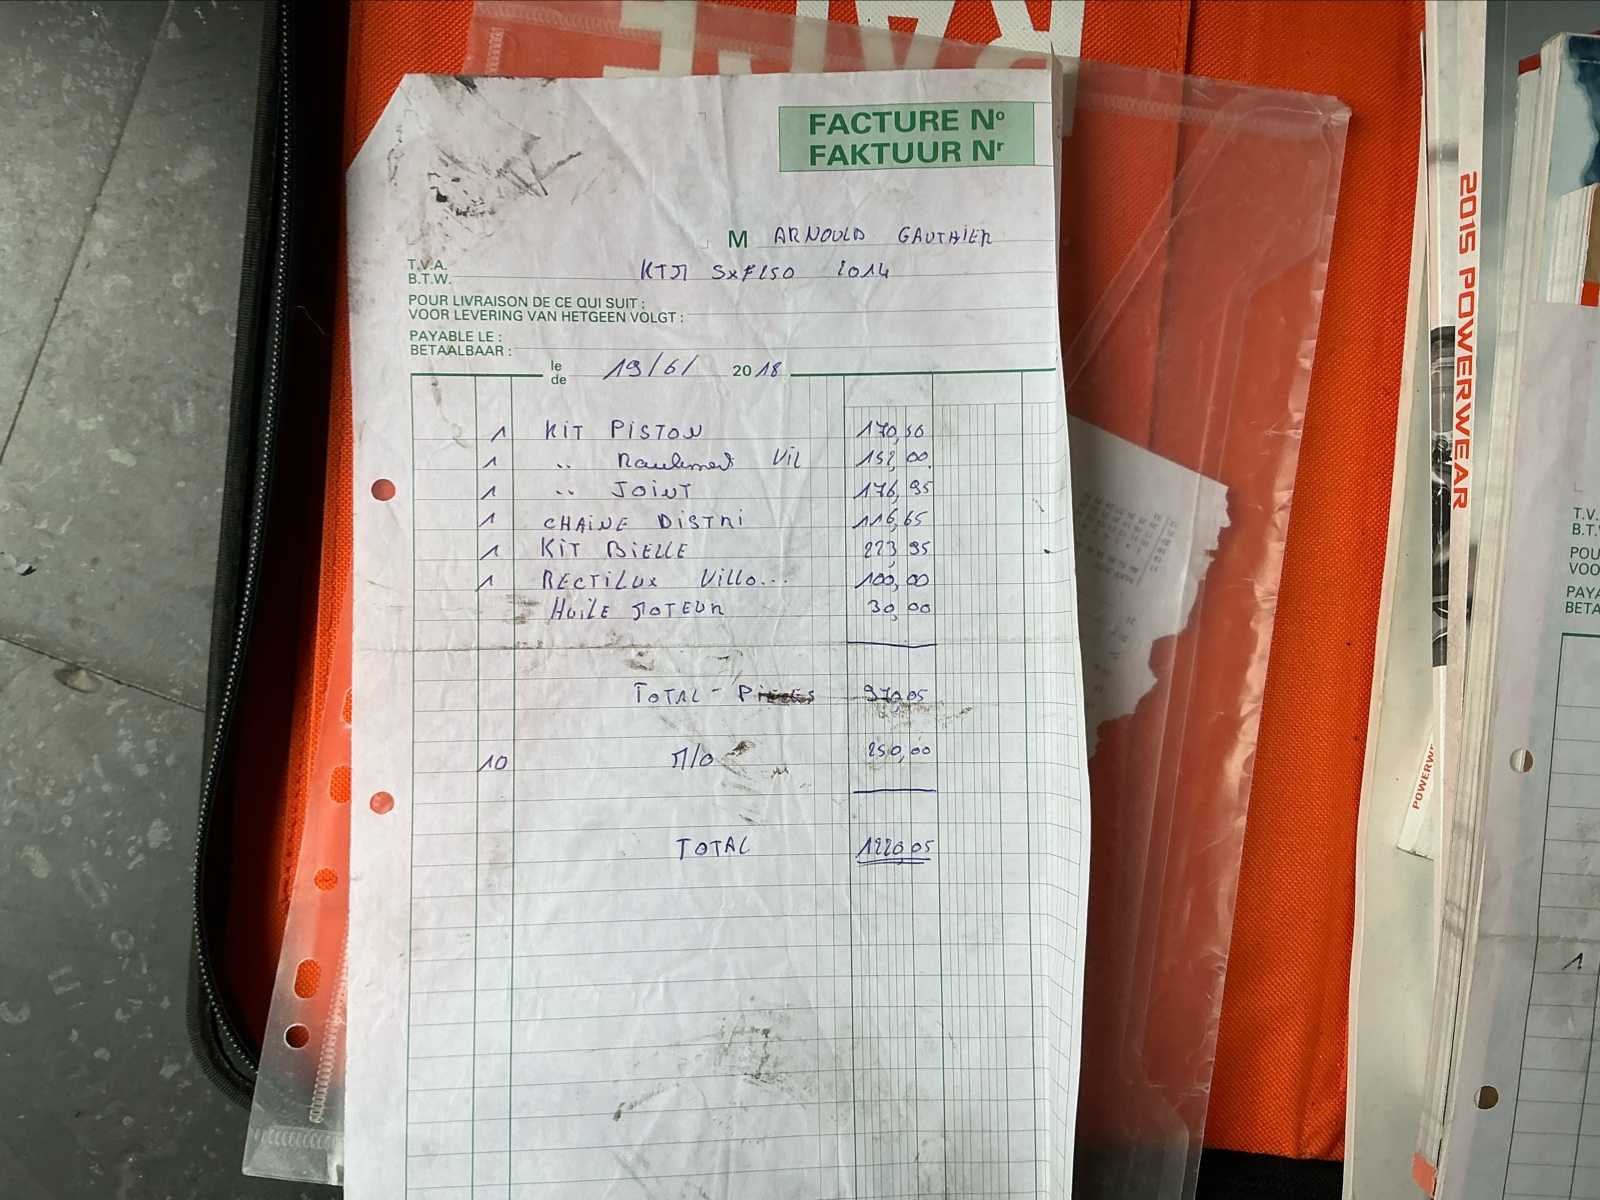 FACTURE N°
FAKTUUR Nr
M ARNOULD GAUTHIER
T.V.A.
B.T.W.
KTM SxF250 2014
POUR LIVRAISON DE CE QUI SUIT :
VOOR LEVERING VAN HETGEEN VOLGT :
PAYABLE LE :
BETAALBAAR :
le
de
19/6/ 2018
1 KIT PISTON 170,50
1 " Roulement Vil 152,00
1 " JOINT 176,95
1 CHAINE DISTRI 116,65
1 KIT BIELLE 223,95
1 RECTILUX Villo... 100,00
HUILE MOTEUR 30,00
TOTAL - PIECES 970,05
10 M/O 250,00
TOTAL 1220,05
2015 POWERWEAR
POWERW
T.V.
B.T.
POU
VOO
PAYA
BETA
1